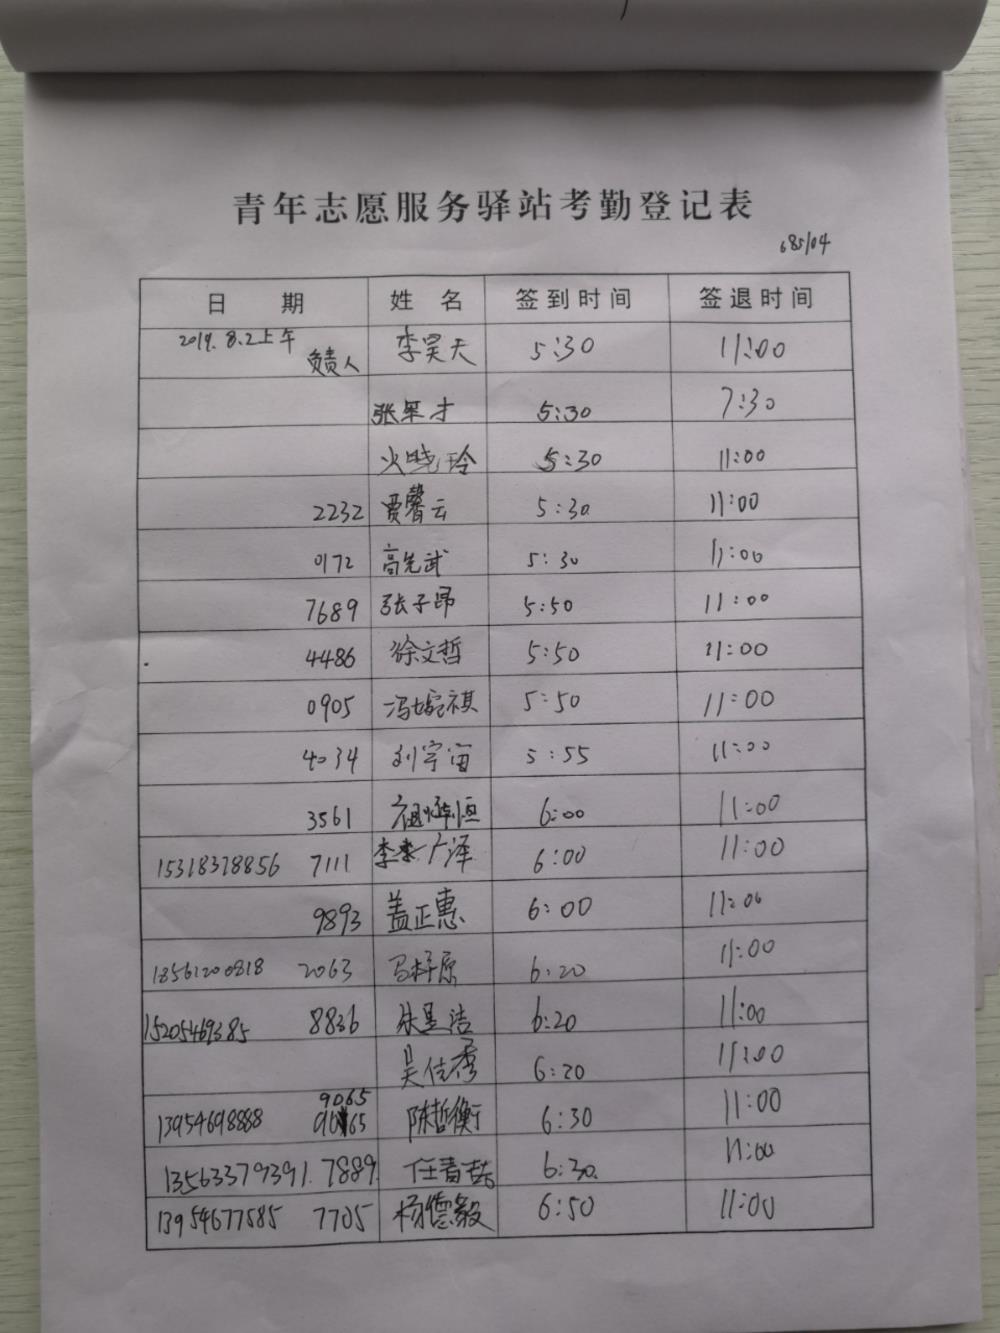 青年志愿服务驿站考勤登记表
685104
日 期 姓 名 签到时间 签退时间
2019.8.2上午 负责人 李昊天 5:30 11:00
张军才 5:30 7:30
火晓玲 5:30 11:00
2232 贾馨云 5:30 11:00
0172 高先武 5:30 11:00
7689 张子昂 5:50 11:00
4486 徐文哲 5:50 11:00
0905 冯婉祺 5:50 11:00
4034 刘宇海 5:55 11:00
3561 6:00 11:00
15318378856 7111 李广泽 6:00 11:00
9893 盖正惠 6:00 11:00
13561200818 2063 马梓原 6:20 11:00
15205469385 8836 洁 6:20 11:00
吴佳秀 6:20 11:00
9065
13954698888 陈哲衡 6:30 11:00
13563379391. 7889. 任春喆 6:30. 11:00
13954677585 7705 杨德毅 6:50 11:00